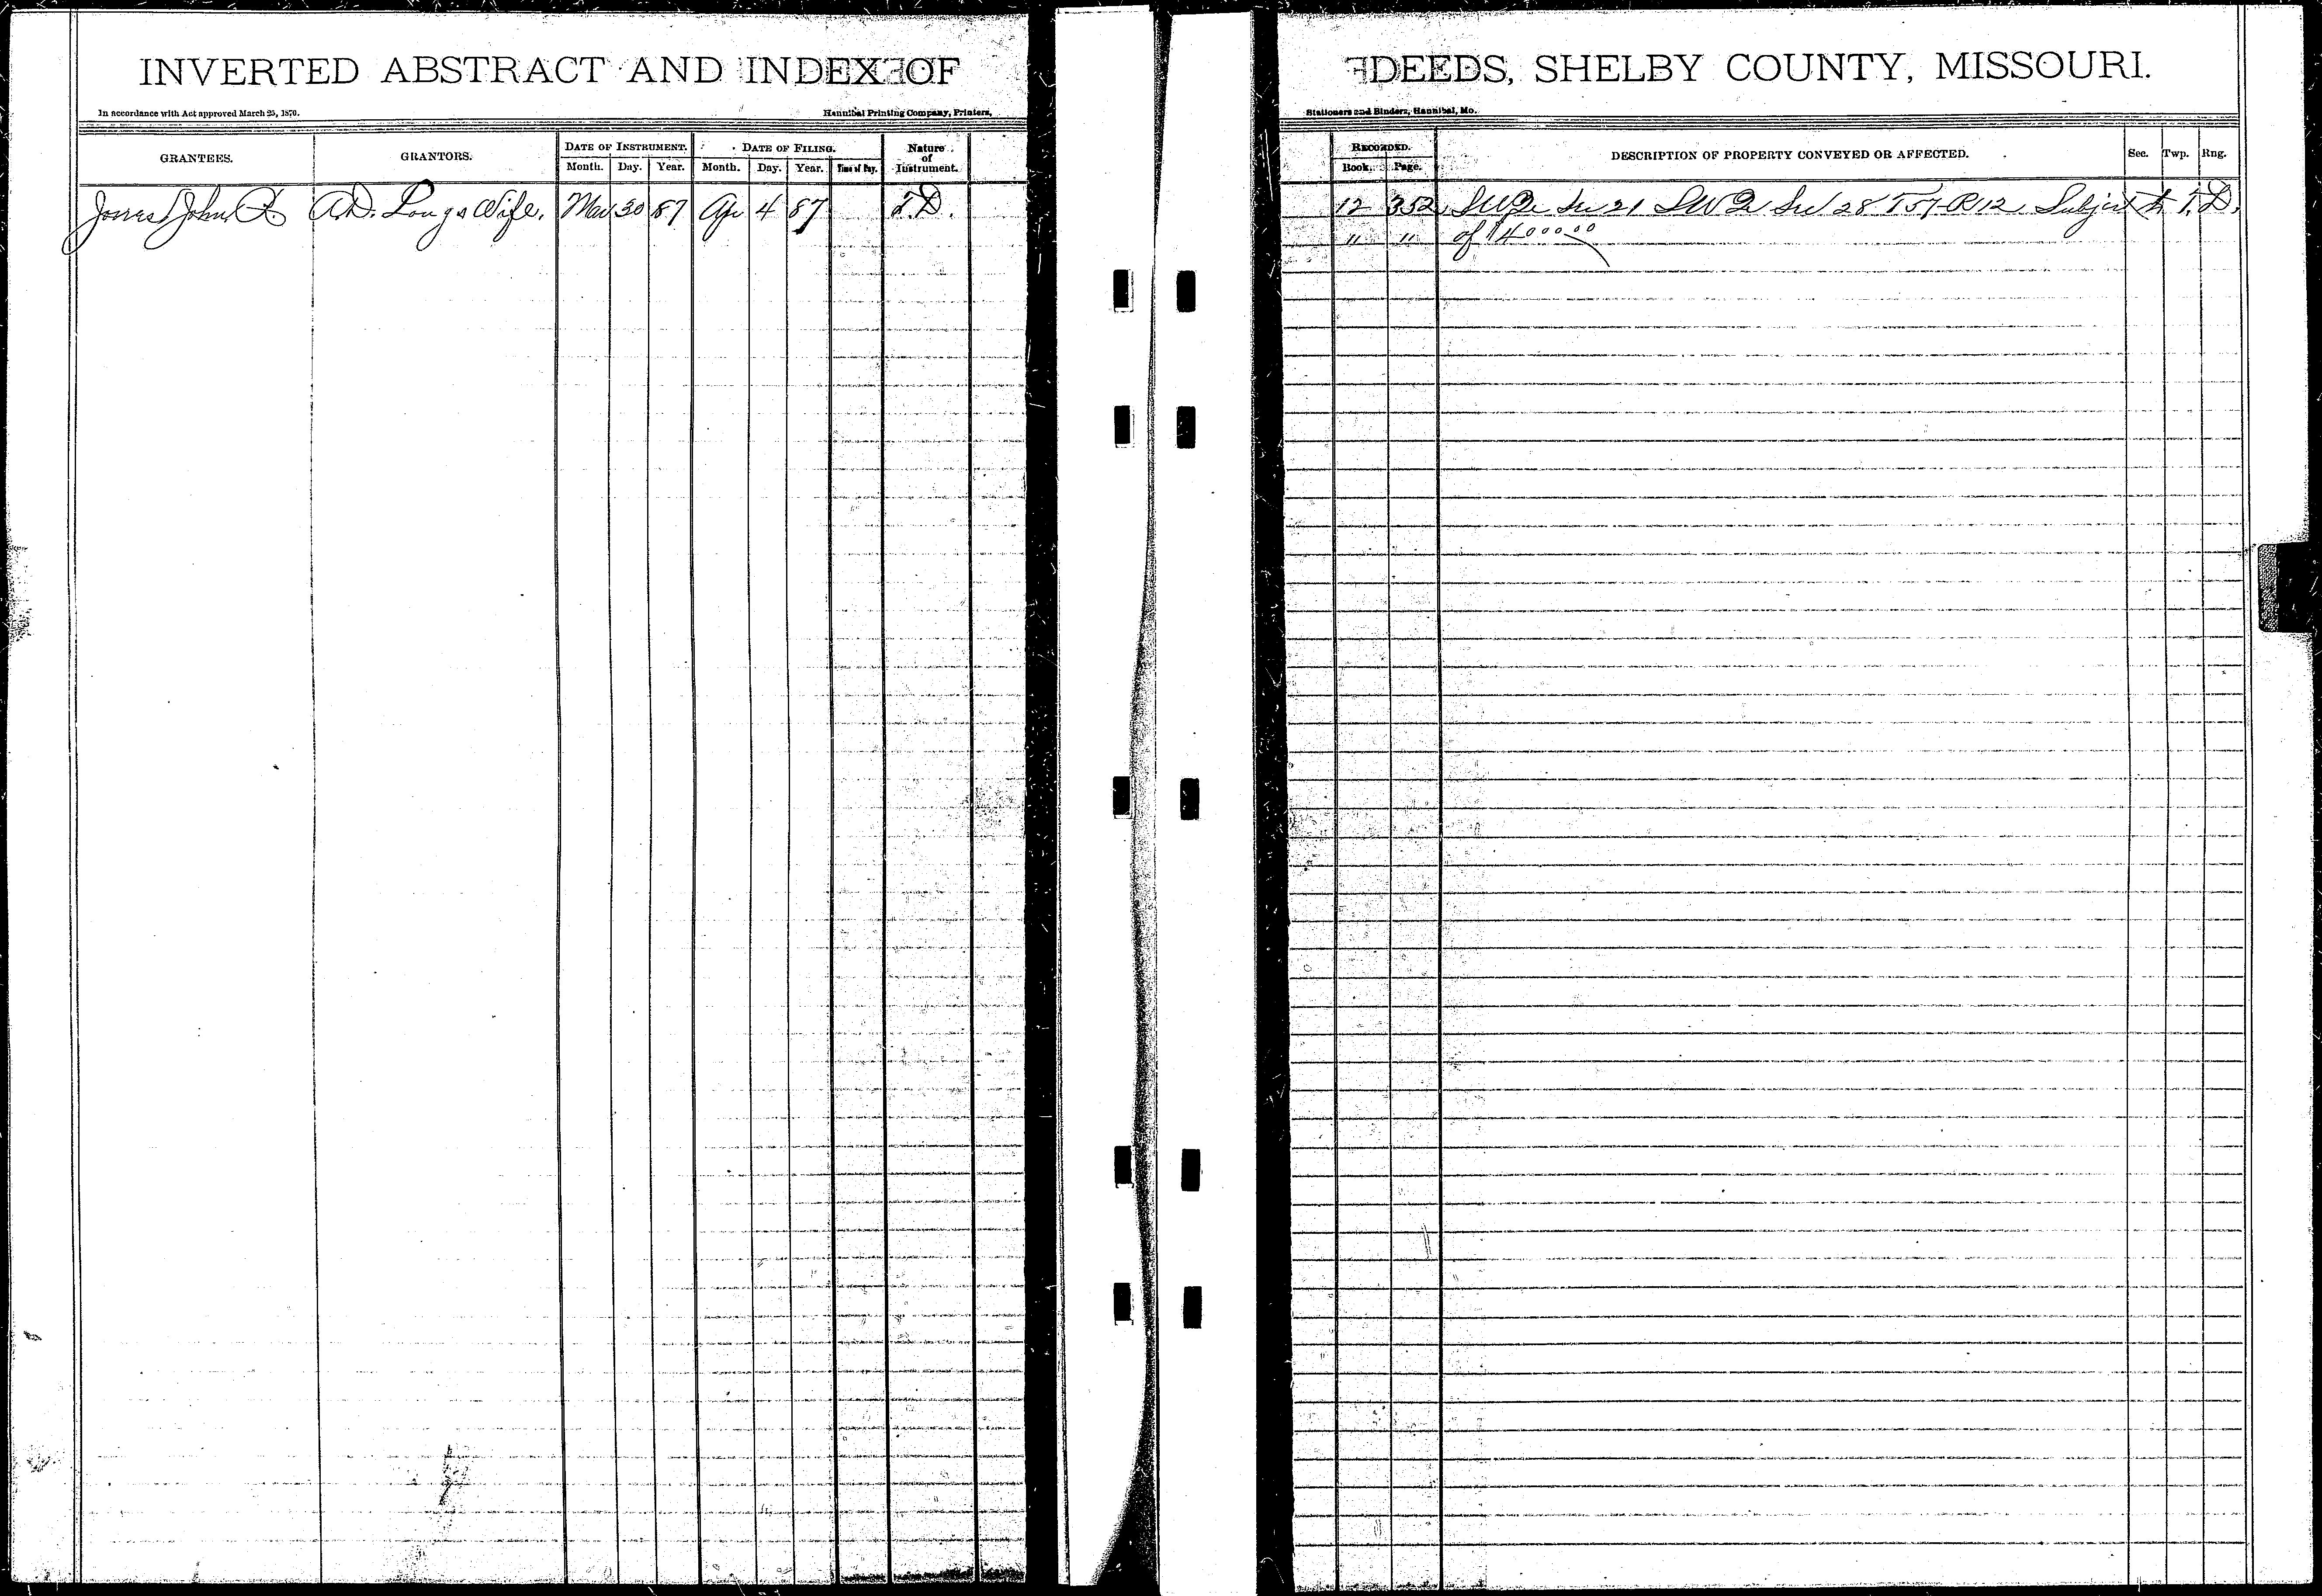 INVERTED ABSTRACT AND INDEX OF DEEDS, SHELBY COUNTY, MISSOURI.
In accordance with Act approved March 25, 1870. Hannibal Printing Company, Printers, Stationers and Binders, Hannibal, Mo.
GRANTEES. GRANTORS. DATE OF INSTRUMENT. DATE OF FILING. Nature of Instrument. RECORDED. DESCRIPTION OF PROPERTY CONVEYED OR AFFECTED. Sec. Twp. Rng.
Month. Day. Year. Month. Day. Year. Time of Day. Book. Page.
Jones John A.D. Long & Wife. Mar 30 87 Apr 4 87 T.D. 12 352 Sec 21 Sec 28 T 57 R 12 Subject to T.D.
" " of $4000.00